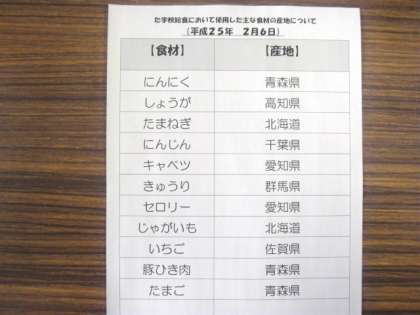 た学校給食において使用した主な食材の産地について
(平成25年 2月6日)
【食材】 【産地】
にんにく 青森県
しょうが 高知県
たまねぎ 北海道
にんじん 千葉県
キャベツ 愛知県
きゅうり 群馬県
セロリー 愛知県
じゃがいも 北海道
いちご 佐賀県
豚ひき肉 青森県
たまご 青森県